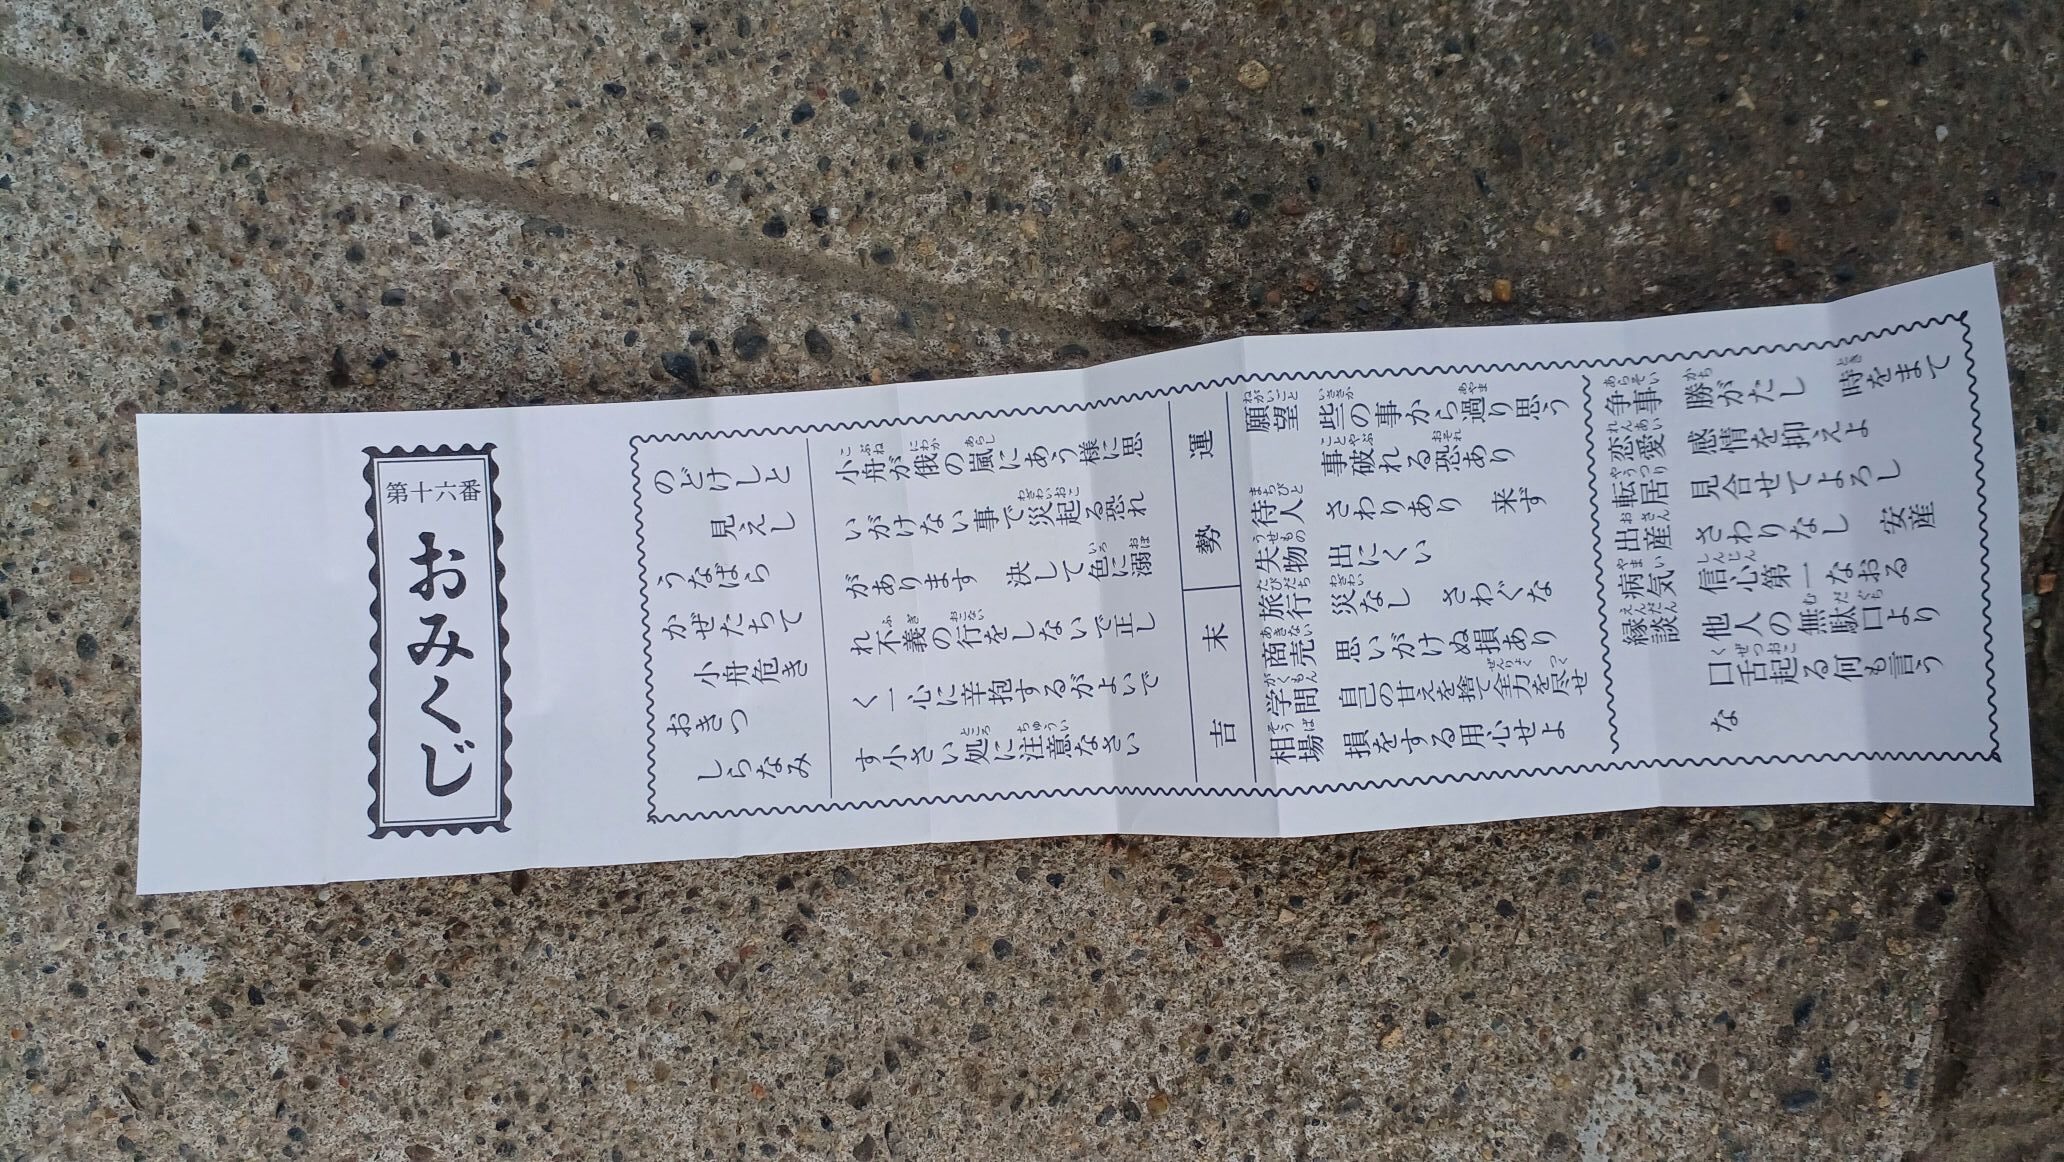 第十六番
おみくじ
のどけしと
見えし
うなばら
かぜたちて
小舟危き
おきつ
しらなみ
小舟が俄の嵐にあう様に思
いがけない事で災起る恐れ
があります 決して色に溺
れ不義の行をしないで正し
く一心に辛抱するがよいで
す小さい処に注意なさい
運勢 末吉
願望 些の事から過り思う
事破れる恐あり
待人 さわりあり 来ず
失物 出にくい
旅行 災なし さわぐな
商売 思いがけぬ損あり
学問 自己の甘えを捨て全力を尽せ
相場 損をする用心せよ
争事 勝がたし 時をまて
恋愛 感情を抑えよ
転居 見合せてよろし
出産 さわりなし 安産
病気 信心第一なおる
縁談 他人の無駄口より
口舌起る何も言う
な